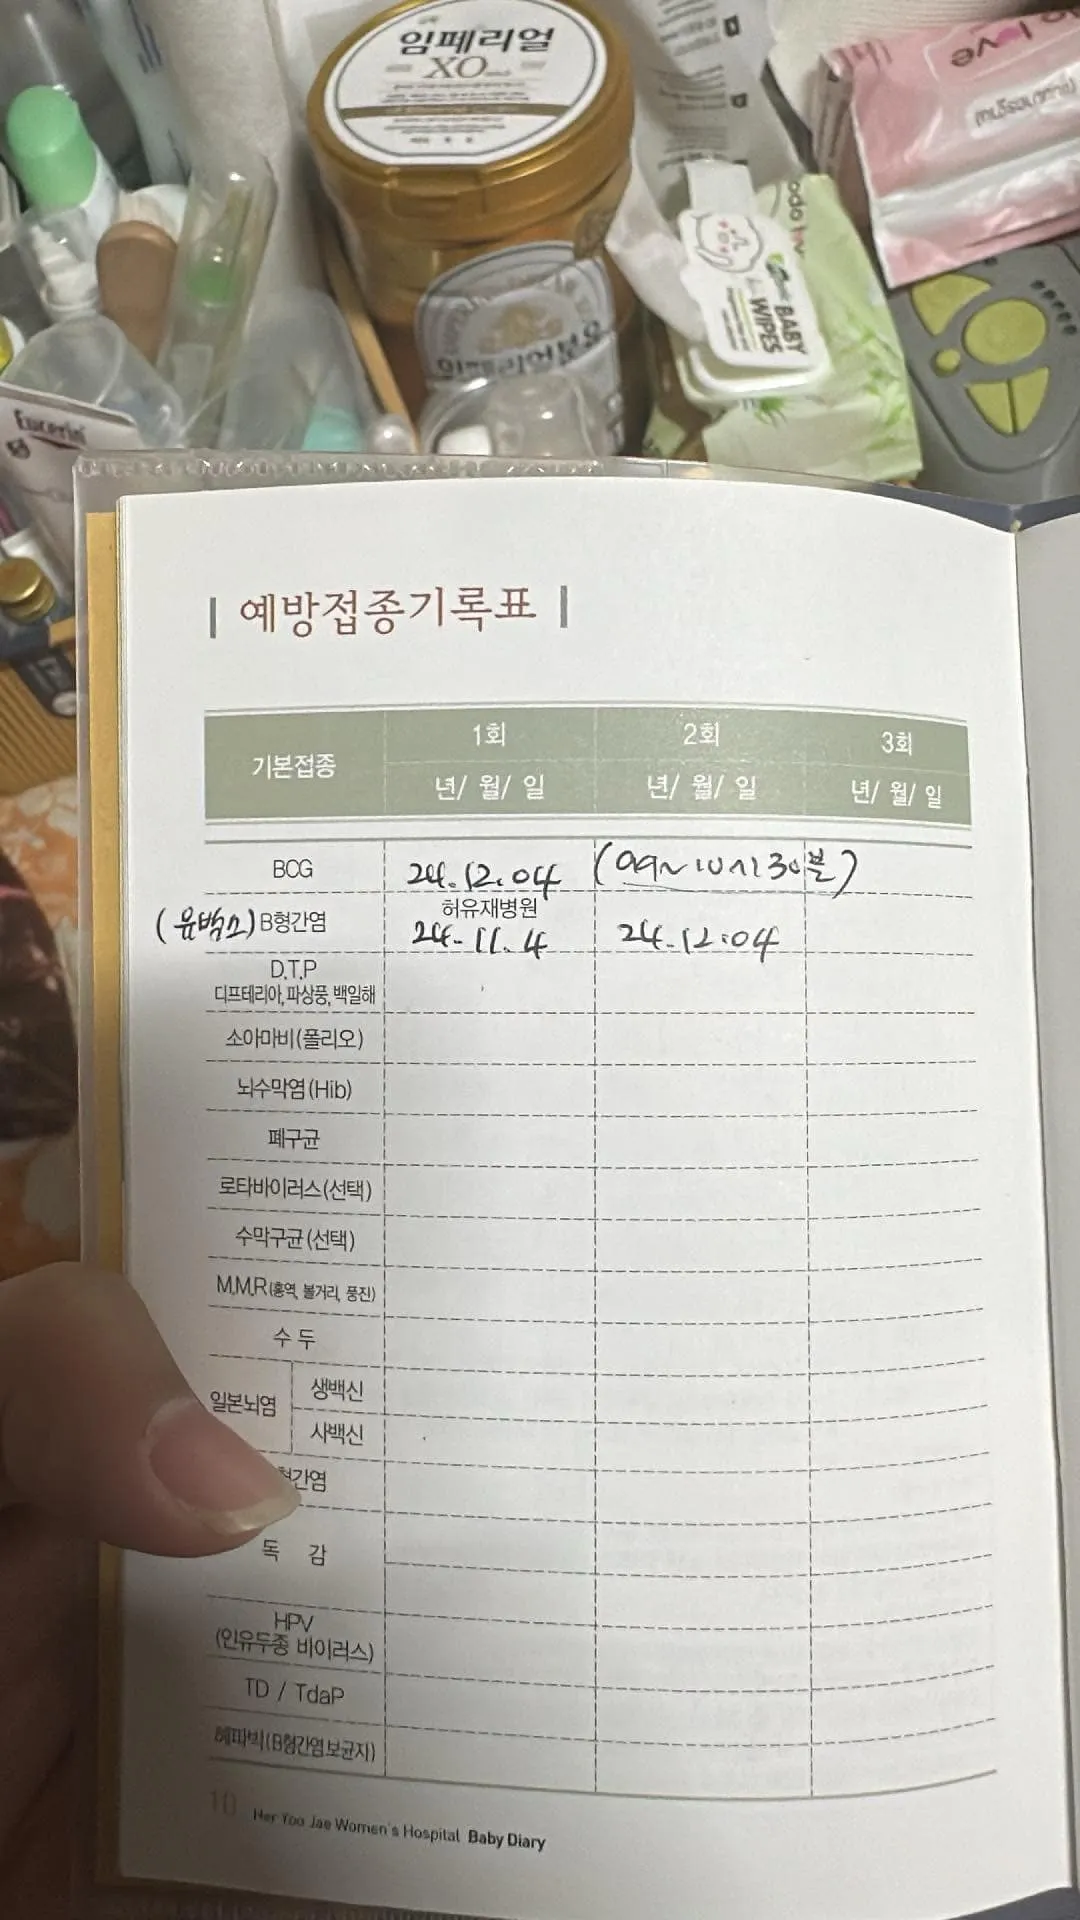 임페리얼
XO
임페리얼분유
love
BABY
WIPES
Eucerin
예방접종기록표
기본접종
1회
2회
3회
년/ 월/ 일
년/ 월/ 일
년/ 월/ 일
BCG
24.12.04
10시30분)
(유박스) B형간염
허유재병원
24.11.4
24.12.04
D.T.P
디프테리아, 파상풍, 백일해
소아마비(폴리오)
뇌수막염(Hib)
폐구균
로타바이러스(선택)
수막구균(선택)
M.M.R(홍역, 볼거리, 풍진)
수 두
일본뇌염
생백신
사백신
형간염
독 감
HPV
(인유두종 바이러스)
TD / TdaP
헤파빅(B형간염 보균지)
10 Her Yoo Jae Women's Hospital Baby Diary